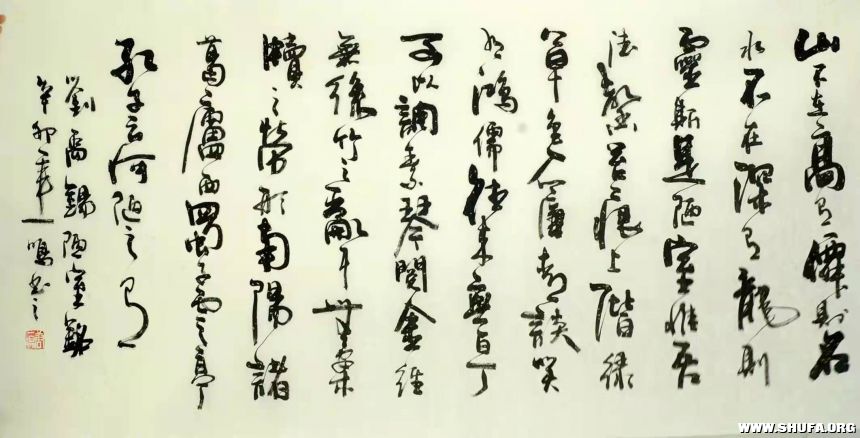 山不在高有僊則名
水不在深有龍則
靈斯是陋室惟吾
德馨苔痕上階綠
草色入簾青談笑
有鴻儒往來無白丁
可以調素琴閱金經
無絲竹之亂耳無案
牘之勞形南陽諸
葛廬西蜀子雲之亭
孔子云何陋之有
劉禹錫陋室銘
辛卯年一鳴書之
WWW.SHUFA.ORG